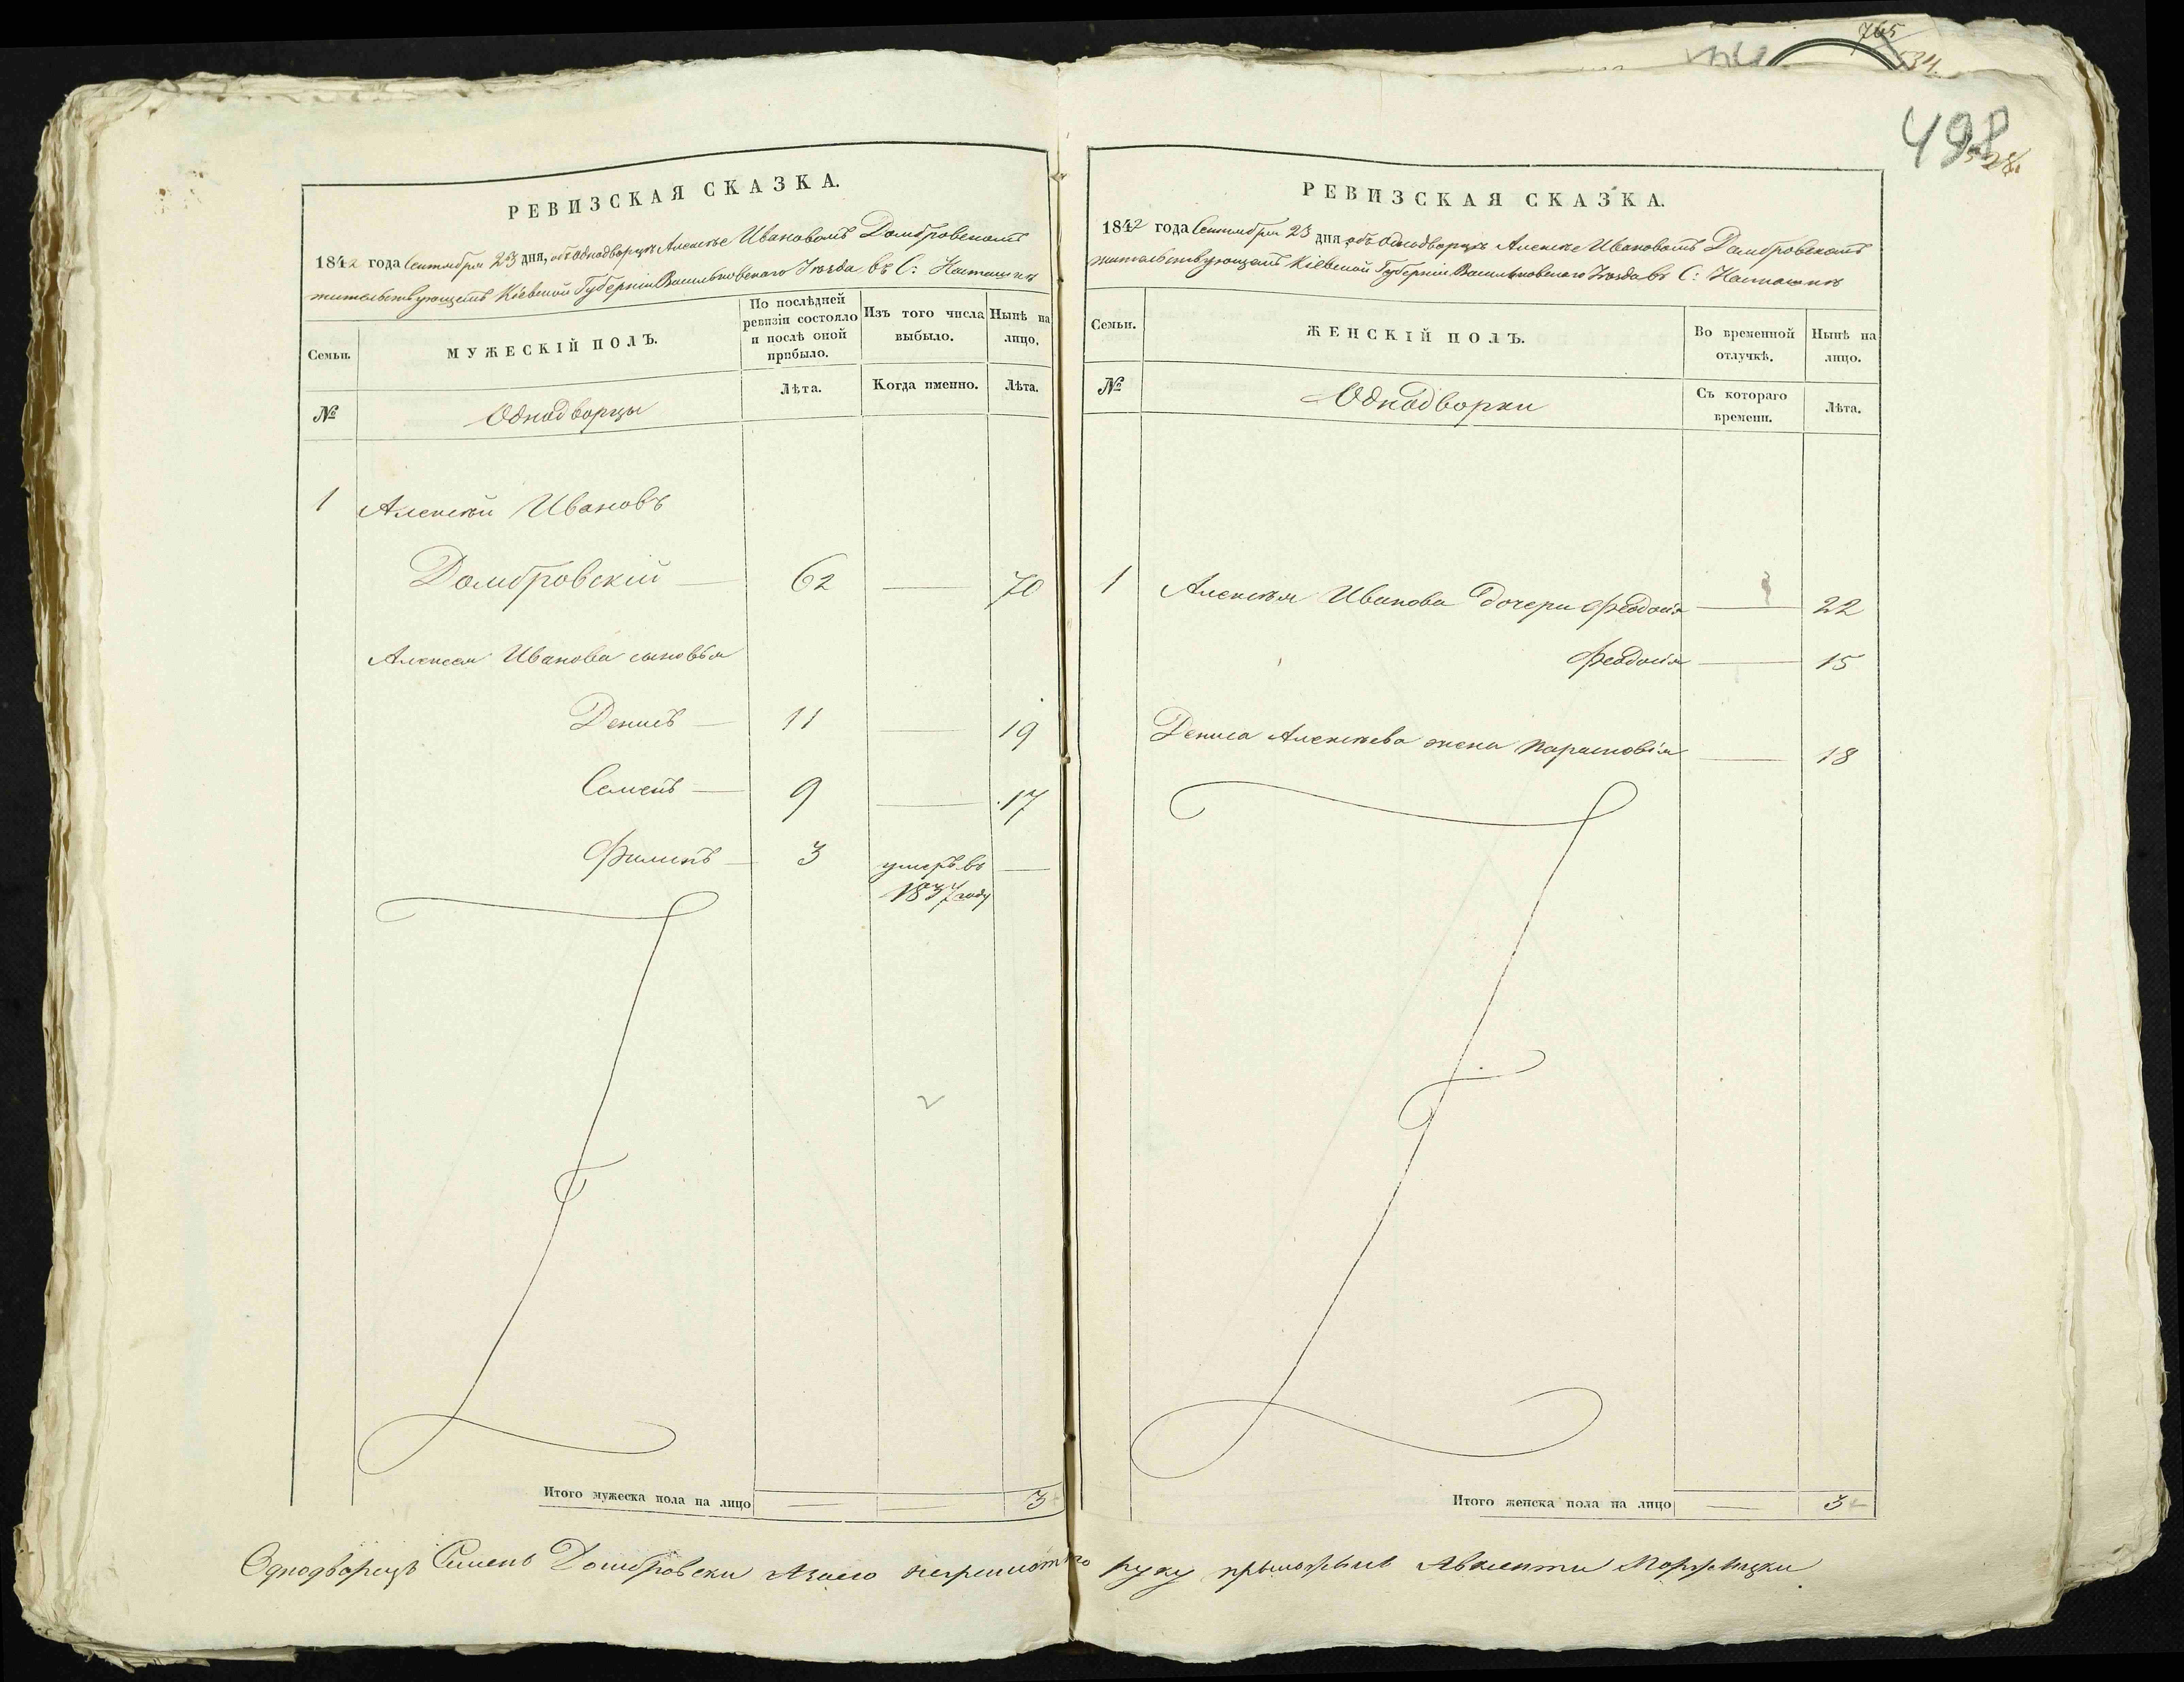 765
34.
498
528.
РЕВИЗСКАЯ СКАЗКА.
1842 года Сентября 23 дня, объ Однодворцѣ Алексѣе Ивановомъ Домбровскомъ
жительствующемъ Кіевской Губерніи Васильковскаго Уѣзда въ С: Насташкѣ
Семьи.
МУЖЕСКІЙ ПОЛЪ.
По послѣдней ревизіи состояло и послѣ оной прибыло.
Изъ того числа выбыло.
Нынѣ на лицо.
№
Однодворцы
Лѣта.
Когда именно.
Лѣта.
1 Алексѣй Ивановъ
Домбровскій — 62 — 70
Алексея Иванова сыновья
Денисъ — 11 — 19
Семенъ — 9 — 17
Филипъ — 3 умеръ въ —
1837 году
Итого мужеска пола на лицо — — 3
РЕВИЗСКАЯ СКАЗКА.
1842 года Сентября 23 дня объ Однодворцѣ Алексѣе Ивановомъ Домбровскомъ
жительствующемъ Кіевской Губерніи Васильковскаго Уѣзда въ С: Насташкѣ
Семьи.
ЖЕНСКІЙ ПОЛЪ.
Во временной отлучкѣ.
Нынѣ на лицо.
№
Однодворки
Съ котораго времени.
Лѣта.
1 Алексѣя Иванова дочери Феодосія — 22
Феодосія — 15
Дениса Алексѣева жена Парасковія — 18
Итого женска пола на лицо — 3
Однодворецъ Семенъ Домбровски неграмотно руку прыложылъ